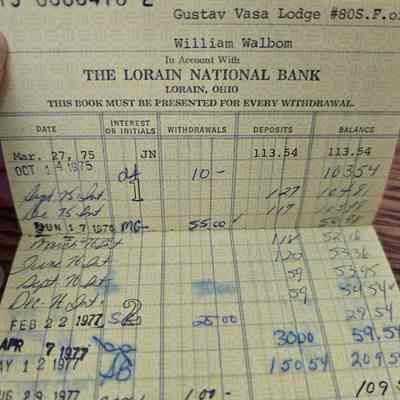 Gustav Vasa Lodge #80S.F.o
William Walbom
In Account With
THE LORAIN NATIONAL BANK
LORAIN, OHIO
THIS BOOK MUST BE PRESENTED FOR EVERY WITHDRAWAL.
DATE INTEREST OR INITIALS WITHDRAWALS DEPOSITS BALANCE
Mar. 27, 75 JN 113.54 113.54
OCT 14 1975 10 - 103 54
Sept 75 Int 1 127 104 81
Dec 75 Int 117
JUN 17 1976 MG- 55.00
March 76 Int 118 52 16
June 76 Int 120 53 36
Sept 76 Int 59 53 95
Dec 76 Int 59 54 54
FEB 22 1977 2 25 00 29 54
APR 7 1977 30 00 59.54
AY 12 1977 150 54 209 5
UG 29 1977 109 5